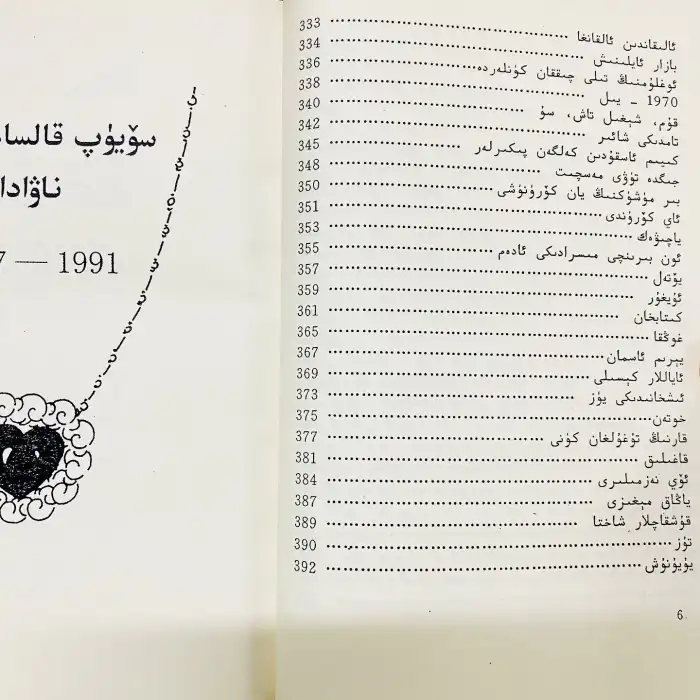 ئالىقاندىن ئالقانغا 333
بازار ئايلىنىش 334
ئوغلۇمنىڭ تىلى چىققان كۈنلەردە 336
1970 - يىل 338
قۇم، شېغىل تاش، سۇ 340
تامدىكى شائىر 342
كىيىم ئاسقۇدىن كەلگەن پىكىرلەر 345
جىگدە تۈۋى مەسچىت 348
بىر مۈشۈكنىڭ يان كۆرۈنۈشى 350
ئاي كۆرۈندى 351
ياچىۋەك 353
ئون بىرىنچى مىسرادىكى ئادەم 355
يۆتەل 357
ئۇيغۇر 359
كىتابخان 361
غوڭقا 365
يېرىم ئاسمان 367
ئاياللار كېسىلى 369
ئىشخانىدىكى يۈز 373
خوتەن 375
قارنىڭ تۇغۇلغان كۈنى 377
قاغىلىق 381
ئۆي نەزمىلىرى 384
ياڭاق مېغىزى 387
قۇشقاچلار شاختا 389
تۇز 390
يۇيۇنۇش 392
6
سۆيۈپ قالسا
ناۋادا
7 — 1991